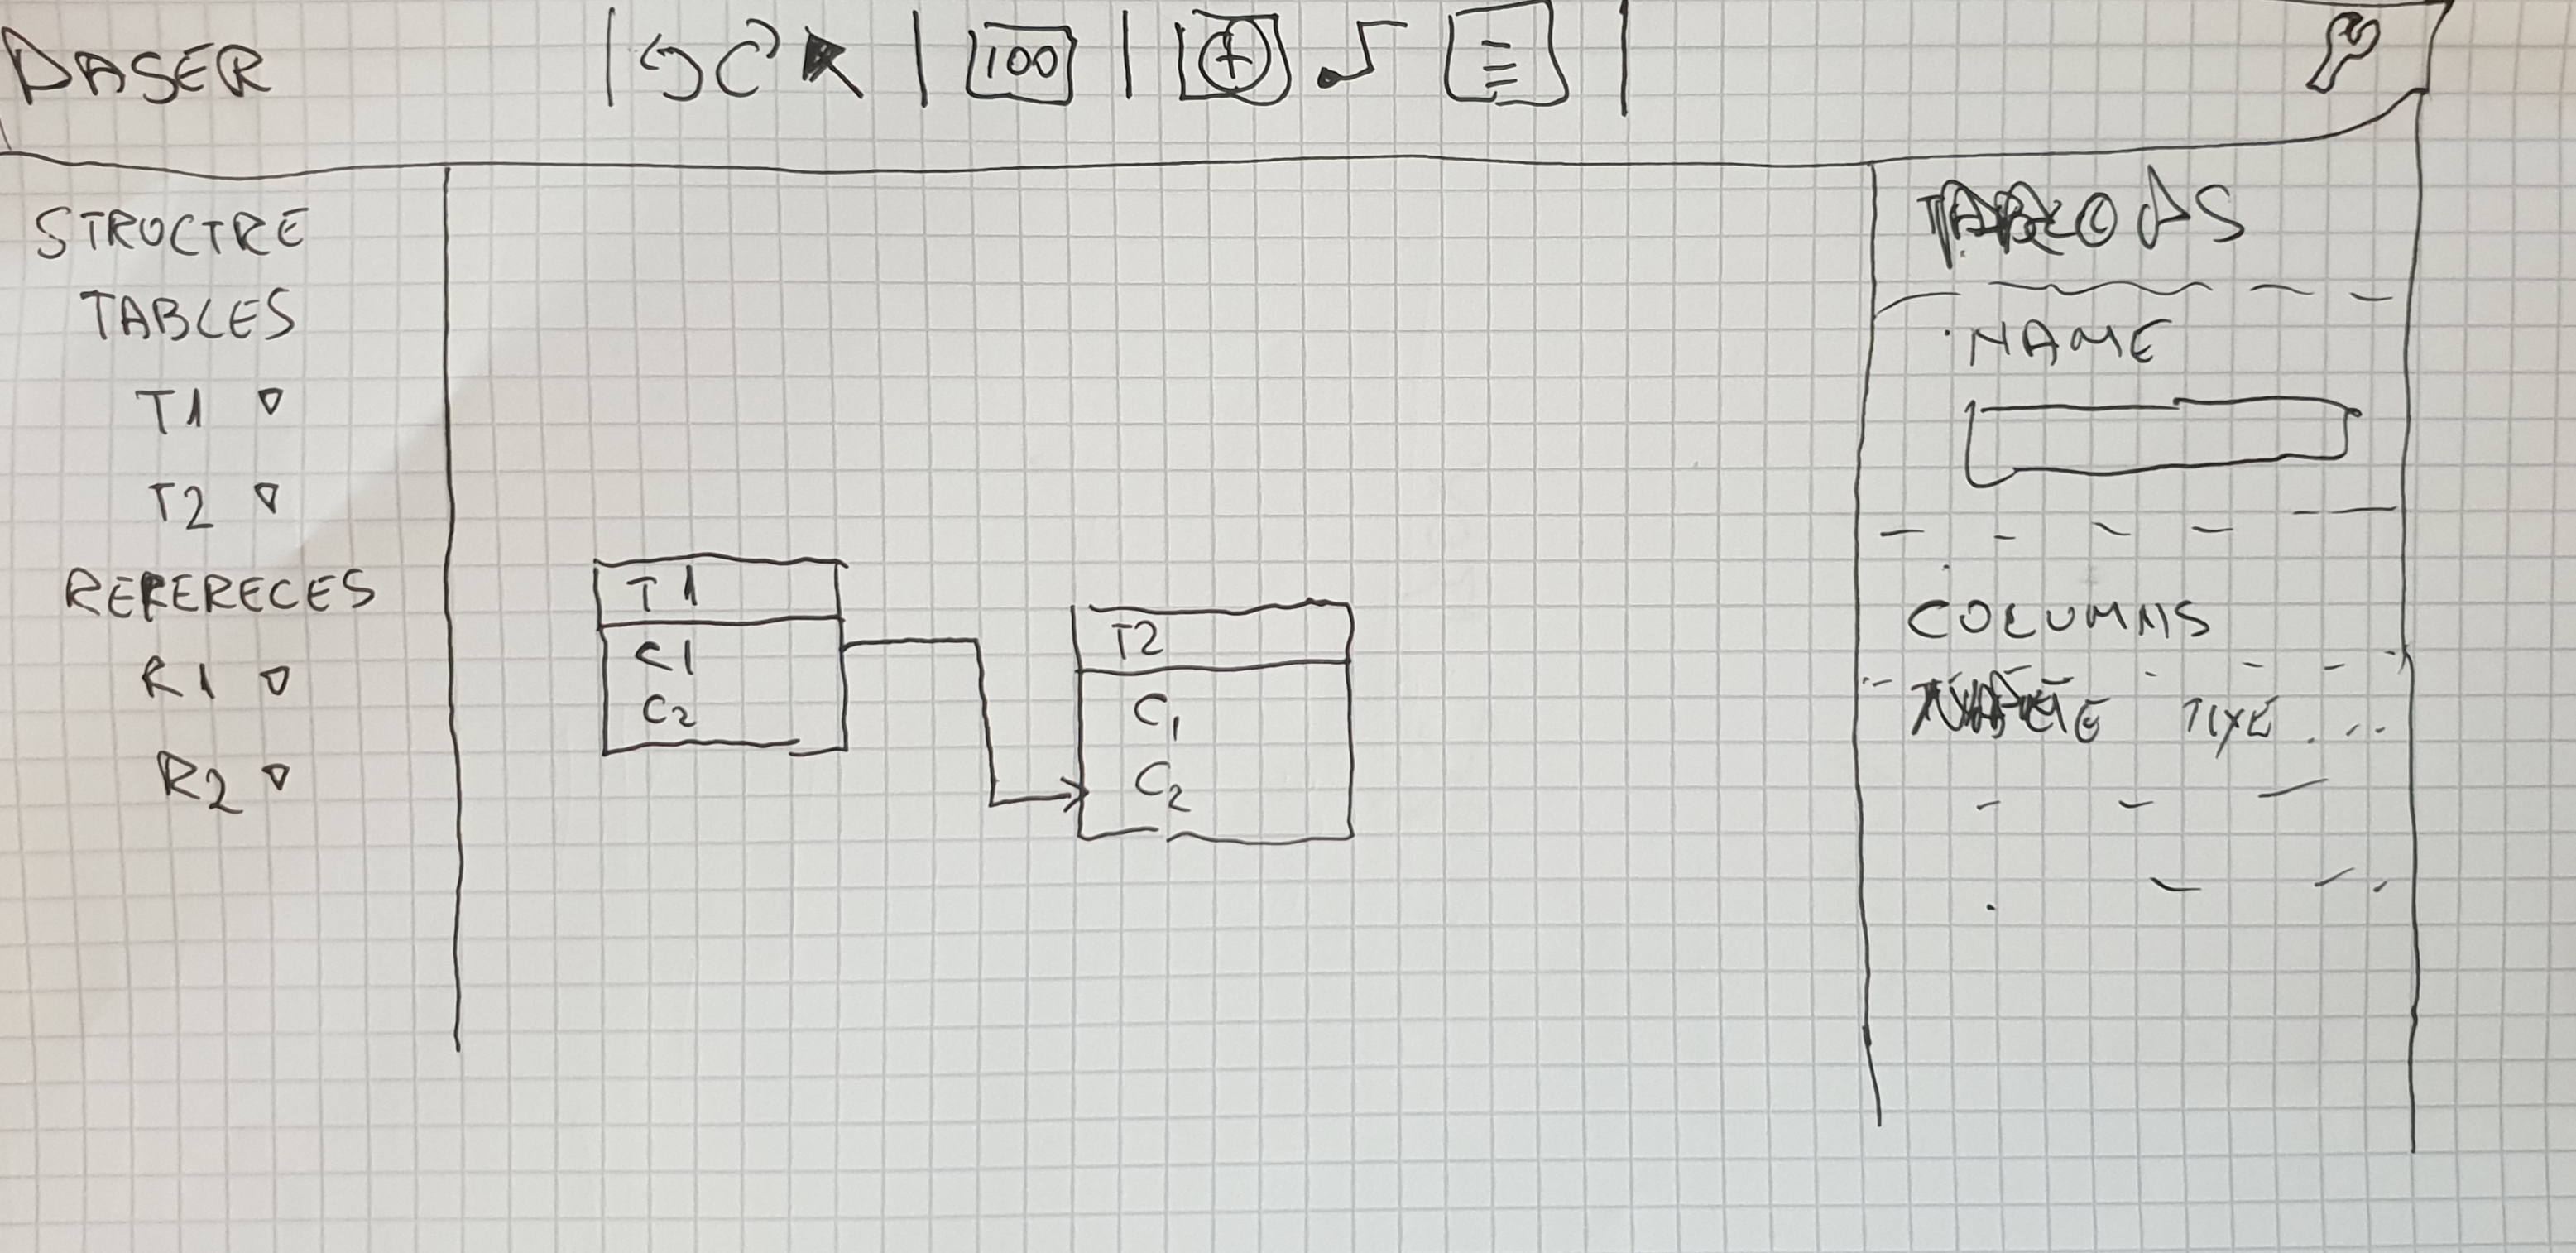 DASER
100
STRUCTRE
TABLES
T1
T2
REFERECES
R1
R2
T1
C1
C2
T2
C1
C2
NAME
COLUMNS
TYPE ...